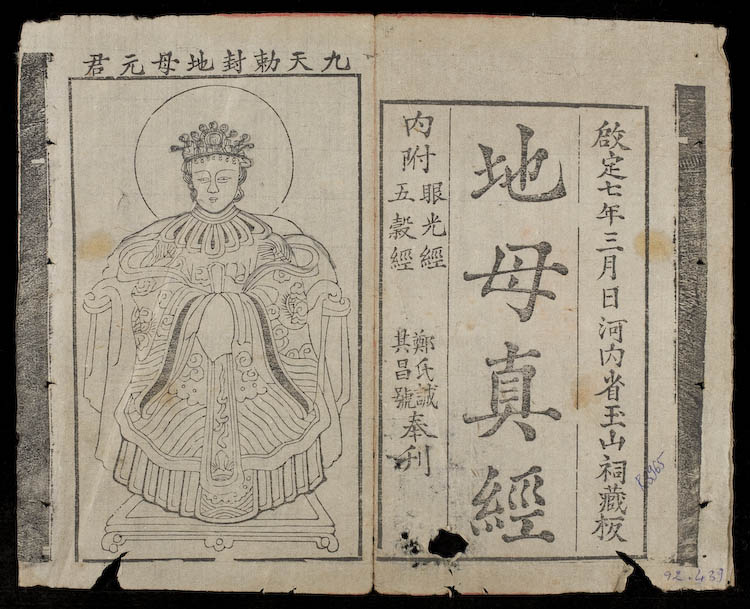 啟定七年三月日河內省玉山祠藏板
地母真經
內附眼光經
五穀經
鄭氏誠
其昌號
奉刊
九天勅封地母元君
R.5965
92.439